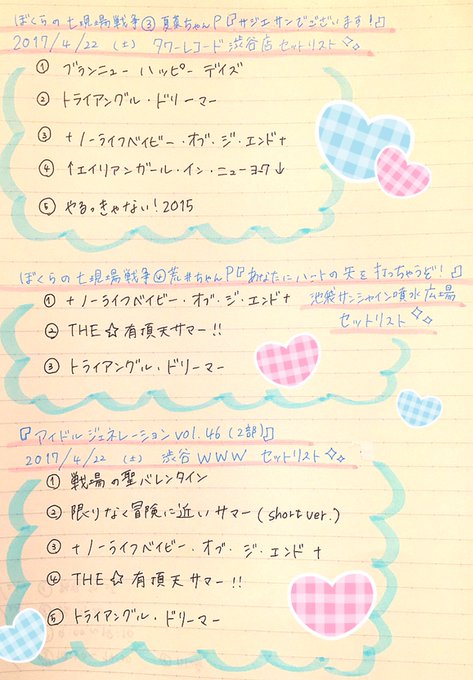 ぼくらの七現場戦争③夏芽ちゃんP『サジェサンでございます！』
2017/4/22 (土) タワーレコード渋谷店 セットリスト
① ブランニュー ハッピー デイズ
② トライアングル・ドリーマー
③ +ノーライフベイビー・オブ・ジ・エンド+
④ ↑エイリアンガール・イン・ニューヨーク↓
⑤ やるっきゃない！2015
ぼくらの七現場戦争④荒井ちゃんP『あなたにハートの矢を打っちゃうぞ！』
池袋サンシャイン噴水広場
セットリスト
① +ノーライフベイビー・オブ・ジ・エンド+
② THE☆有頂天サマー!!
③ トライアングル・ドリーマー
『アイドルジェネレーション vol.46 (2部)』
2017/4/22 (土) 渋谷WWW セットリスト
① 戦場の聖バレンタイン
② 限りなく冒険に近いサマー (short ver.)
③ +ノーライフベイビー・オブ・ジ・エンド+
④ THE☆有頂天サマー!!
⑤ トライアングル・ドリーマー